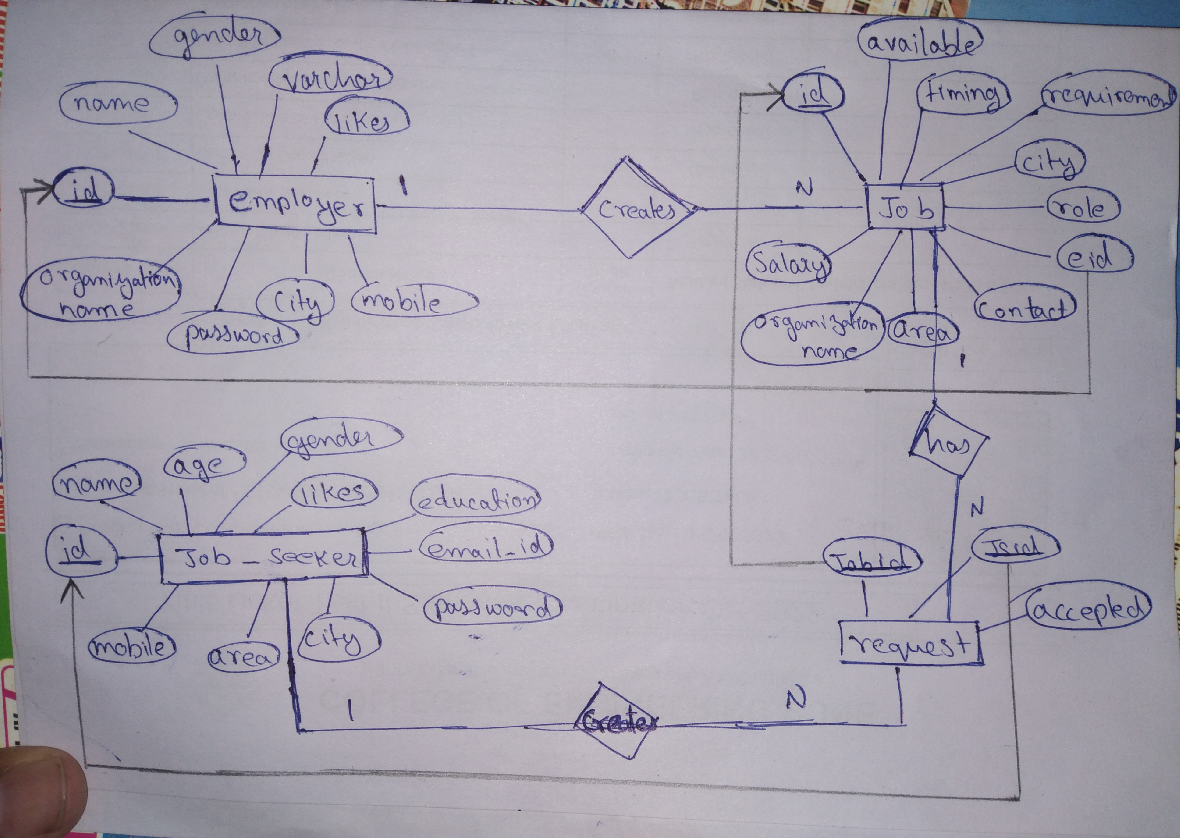 gender
varchar
name
likes
id
employer
1
organization
name
password
city
mobile
Creates
N
available
id
timing
requirement
city
Job
role
eid
Salary
Contact
organization
name
area
1
has
N
name
age
gender
likes
education
id
Job_Seeker
email_id
password
mobile
area
city
1
Creates
N
Jobid
Jsid
accepted
request